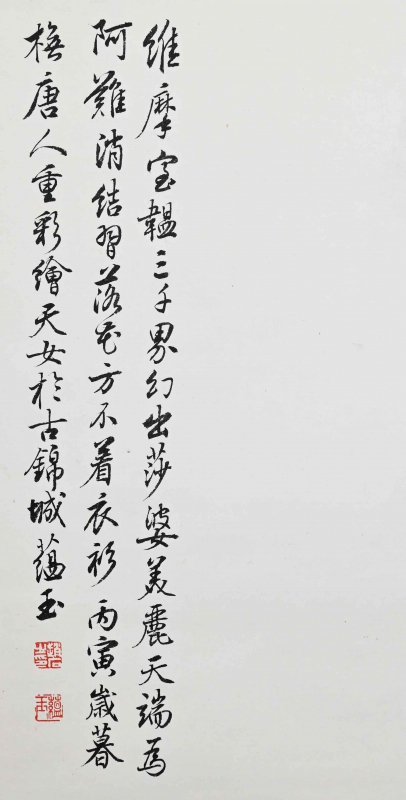 維摩室韞三千界幻出莎婆美麗天端為
阿難消結習落花方不着衣衫丙寅歲暮
橅唐人重彩繪天女於古錦城蘊玉
趙氏
蘊玉